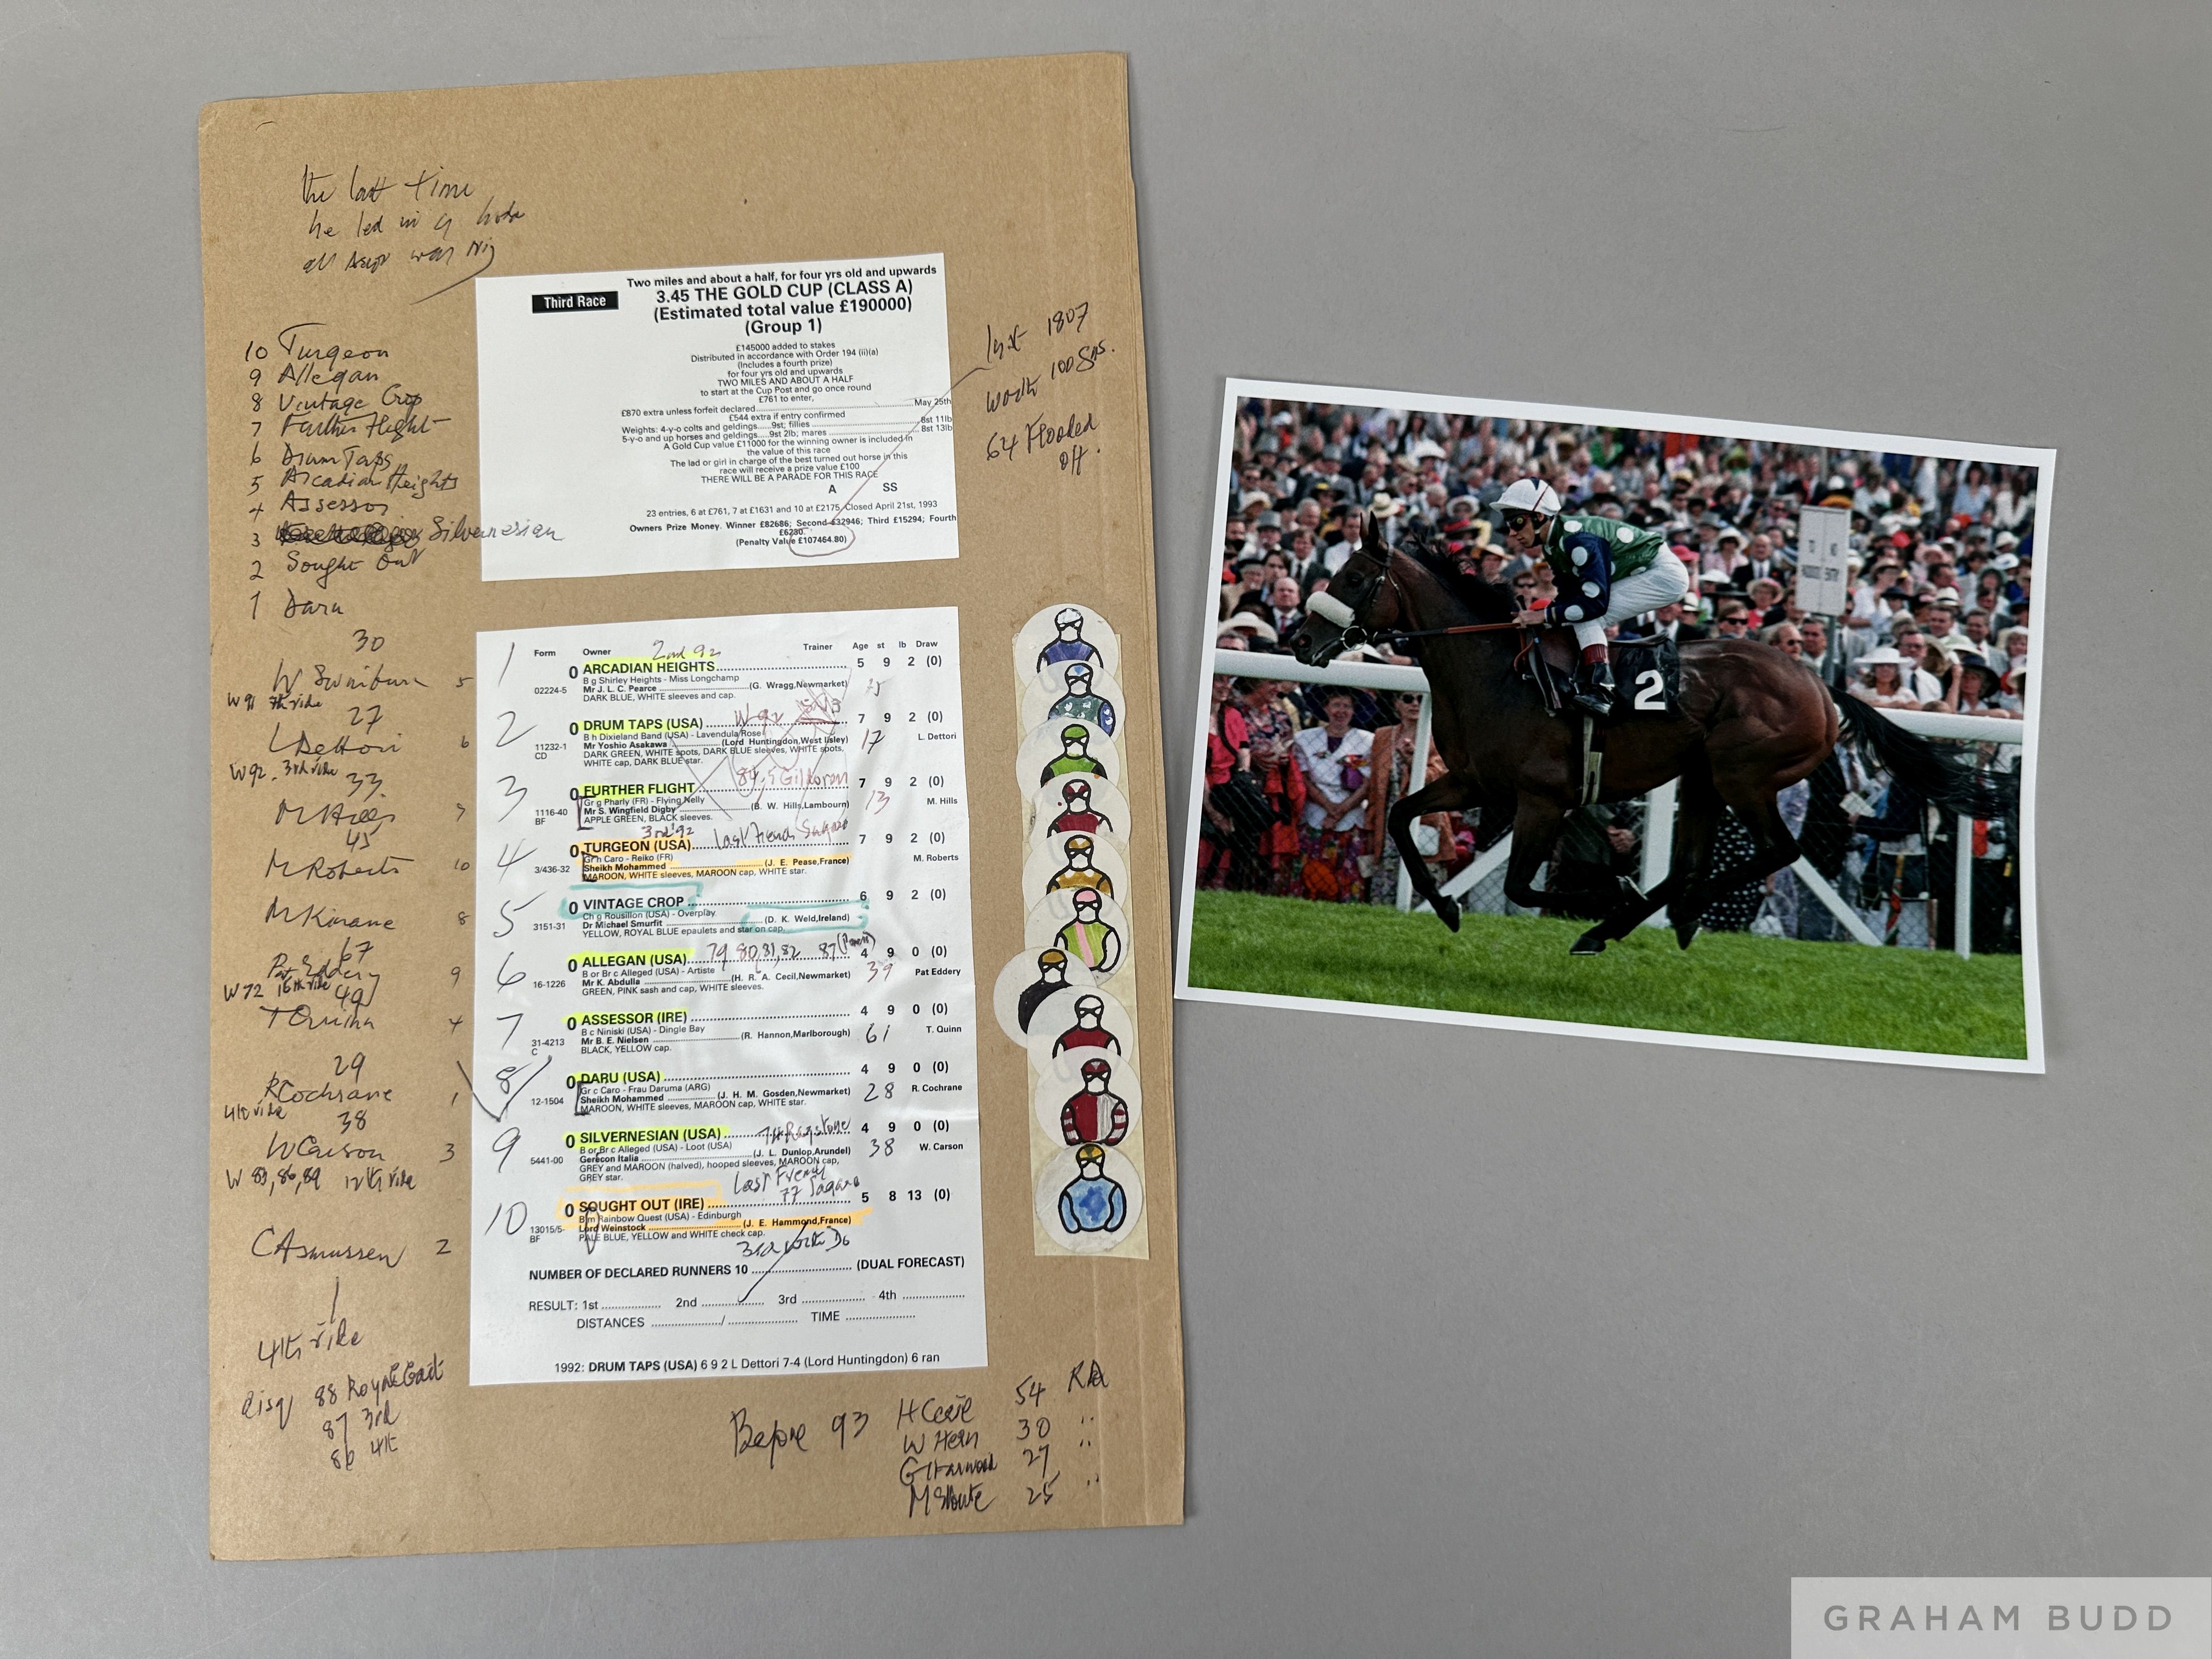 the last time
he led in a
all was
Third Race
Two miles and about a half, for four yrs old and upwards
3.45 THE GOLD CUP (CLASS A)
(Estimated total value £190000)
(Group 1)
£145000 added to stakes
Distributed in accordance with Order 194 (ii)(a)
(Includes a fourth prize)
for four yrs old and upwards
TWO MILES AND ABOUT A HALF
to start at the Cup Post and go once round
£761 to enter,
£870 extra unless forfeit declared..........May 25th
£544 extra if entry confirmed
Weights: 4-y-o colts and geldings.....9st; fillies..........8st 11lb
5-y-o and up horses and geldings.....9st 2lb; mares..........8st 13lb
A Gold Cup value £11000 for the winning owner is included in
the value of this race
The lad or girl in charge of the best turned out horse in this
race will receive a prize value £100
THERE WILL BE A PARADE FOR THIS RACE
A SS
23 entries, 6 at £761, 7 at £1631 and 10 at £2175. Closed April 21st, 1993
Owners Prize Money. Winner £82686; Second £32946; Third £15294; Fourth
£6230.
(Penalty Value £107464.80)
1st 1807
worth 100 Gns.
64 Flooded
off.
10 Turgeon
9 Allegan
8 Vintage Crop
7 Further Flight
6 Drum Taps
5 Arcadian Heights
4 Assessor
3 Silvernesian
2 Sought Out
1 Daru
30
W Swinburn 5
W 91 7th ride
27
L Dettori 6
W 92. 3rd ride
33
M Hills 7
45
M Roberts 10
M Kinane 8
67
Pat Eddery 9
W 72 16th ride
49
T Quinn 4
29
R Cochrane 1
4th ride
38
W Carson 3
W 83, 86, 89 12th ride
C Asmussen 2
4th ride
disq 88 Royal Gait
87 3rd
86 4th
Form Owner 2nd 92 Trainer Age st lb Draw
1 0 ARCADIAN HEIGHTS.......... 5 9 2 (0)
B g Shirley Heights - Miss Longchamp
02224-5 Mr J. L. C. Pearce ..........(G. Wragg,Newmarket)
DARK BLUE, WHITE sleeves and cap.
2 0 DRUM TAPS (USA) W 92 .......... 7 9 2 (0)
B h Dixieland Band (USA) - Lavendula Rose
11232-1 Mr Yoshio Asakawa ..........(Lord Huntingdon,West Ilsley) 17 L. Dettori
CD DARK GREEN, WHITE spots, DARK BLUE sleeves, WHITE spots,
WHITE cap, DARK BLUE star.
84,5 Gildoran
3 0 FURTHER FLIGHT.......... 7 9 2 (0)
Gr g Pharly (FR) - Flying Nelly
1116-40 Mr S. Wingfield Digby ..........(B. W. Hills,Lambourn) 13 M. Hills
BF APPLE GREEN, BLACK sleeves.
3rd '92 Last French Sagaro
4 0 TURGEON (USA).......... 7 9 2 (0)
Gr h Caro - Reiko (FR)
3/436-32 Sheikh Mohammed ..........(J. E. Pease,France) M. Roberts
MAROON, WHITE sleeves, MAROON cap, WHITE star.
5 0 VINTAGE CROP.......... 6 9 2 (0)
Ch g Rousillon (USA) - Overplay
3151-31 Dr Michael Smurfit ..........(D. K. Weld,Ireland)
YELLOW, ROYAL BLUE epaulets and star on cap.
79 80,81,82 87 (Paean)
6 0 ALLEGAN (USA).......... 4 9 0 (0)
B or Br c Alleged (USA) - Artiste
16-1226 Mr K. Abdulla ..........(H. R. A. Cecil,Newmarket) 39 Pat Eddery
GREEN, PINK sash and cap, WHITE sleeves.
7 0 ASSESSOR (IRE).......... 4 9 0 (0)
B c Niniski (USA) - Dingle Bay
31-4213 Mr B. E. Nielsen ..........(R. Hannon,Marlborough) 61 T. Quinn
C BLACK, YELLOW cap.
8 0 DARU (USA).......... 4 9 0 (0)
Gr c Caro - Frau Daruma (ARG)
12-1504 Sheikh Mohammed ..........(J. H. M. Gosden,Newmarket) 28 R. Cochrane
MAROON, WHITE sleeves, MAROON cap, WHITE star.
9 0 SILVERNESIAN (USA).......... 74 Ragstone 4 9 0 (0)
B or Br c Alleged (USA) - Loot (USA)
5441-00 Gerecon Italia ..........(J. L. Dunlop,Arundel) 38 W. Carson
GREY and MAROON (halved), hooped sleeves, MAROON cap,
GREY star.
Last French
77 Sagaro
10 0 SOUGHT OUT (IRE).......... 5 8 13 (0)
B m Rainbow Quest (USA) - Edinburgh
13015/5- Lord Weinstock ..........(J. E. Hammond,France)
BF PALE BLUE, YELLOW and WHITE check cap.
NUMBER OF DECLARED RUNNERS 10 .......... (DUAL FORECAST)
RESULT: 1st .......... 2nd .......... 3rd .......... 4th ..........
DISTANCES ........../.......... TIME ..........
1992: DRUM TAPS (USA) 6 9 2 L Dettori 7-4 (Lord Huntingdon) 6 ran
Before 93 H Cecil 54 RA
W Hern 30 "
G Harwood 27 "
M Stoute 25 "
2
GRAHAM BUDD